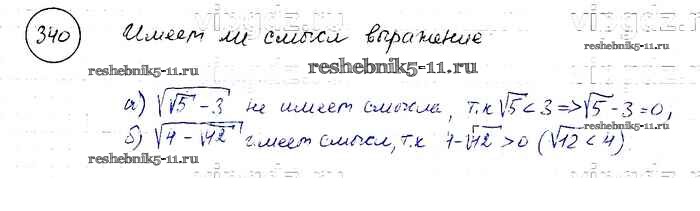 vipgdz.ru
340 Имеет ли смысл выражение
reshebnik5-11.ru reshebnik5-11.ru
а) √(√5 - 3) не имеет смысла, т.к √5 < 3 => √5 - 3 = 0,
б) √(4 - √12) имеет смысл, т.к 4 - √12 > 0 (√12 < 4)
reshebnik5-11.ru reshebnik5-11.ru